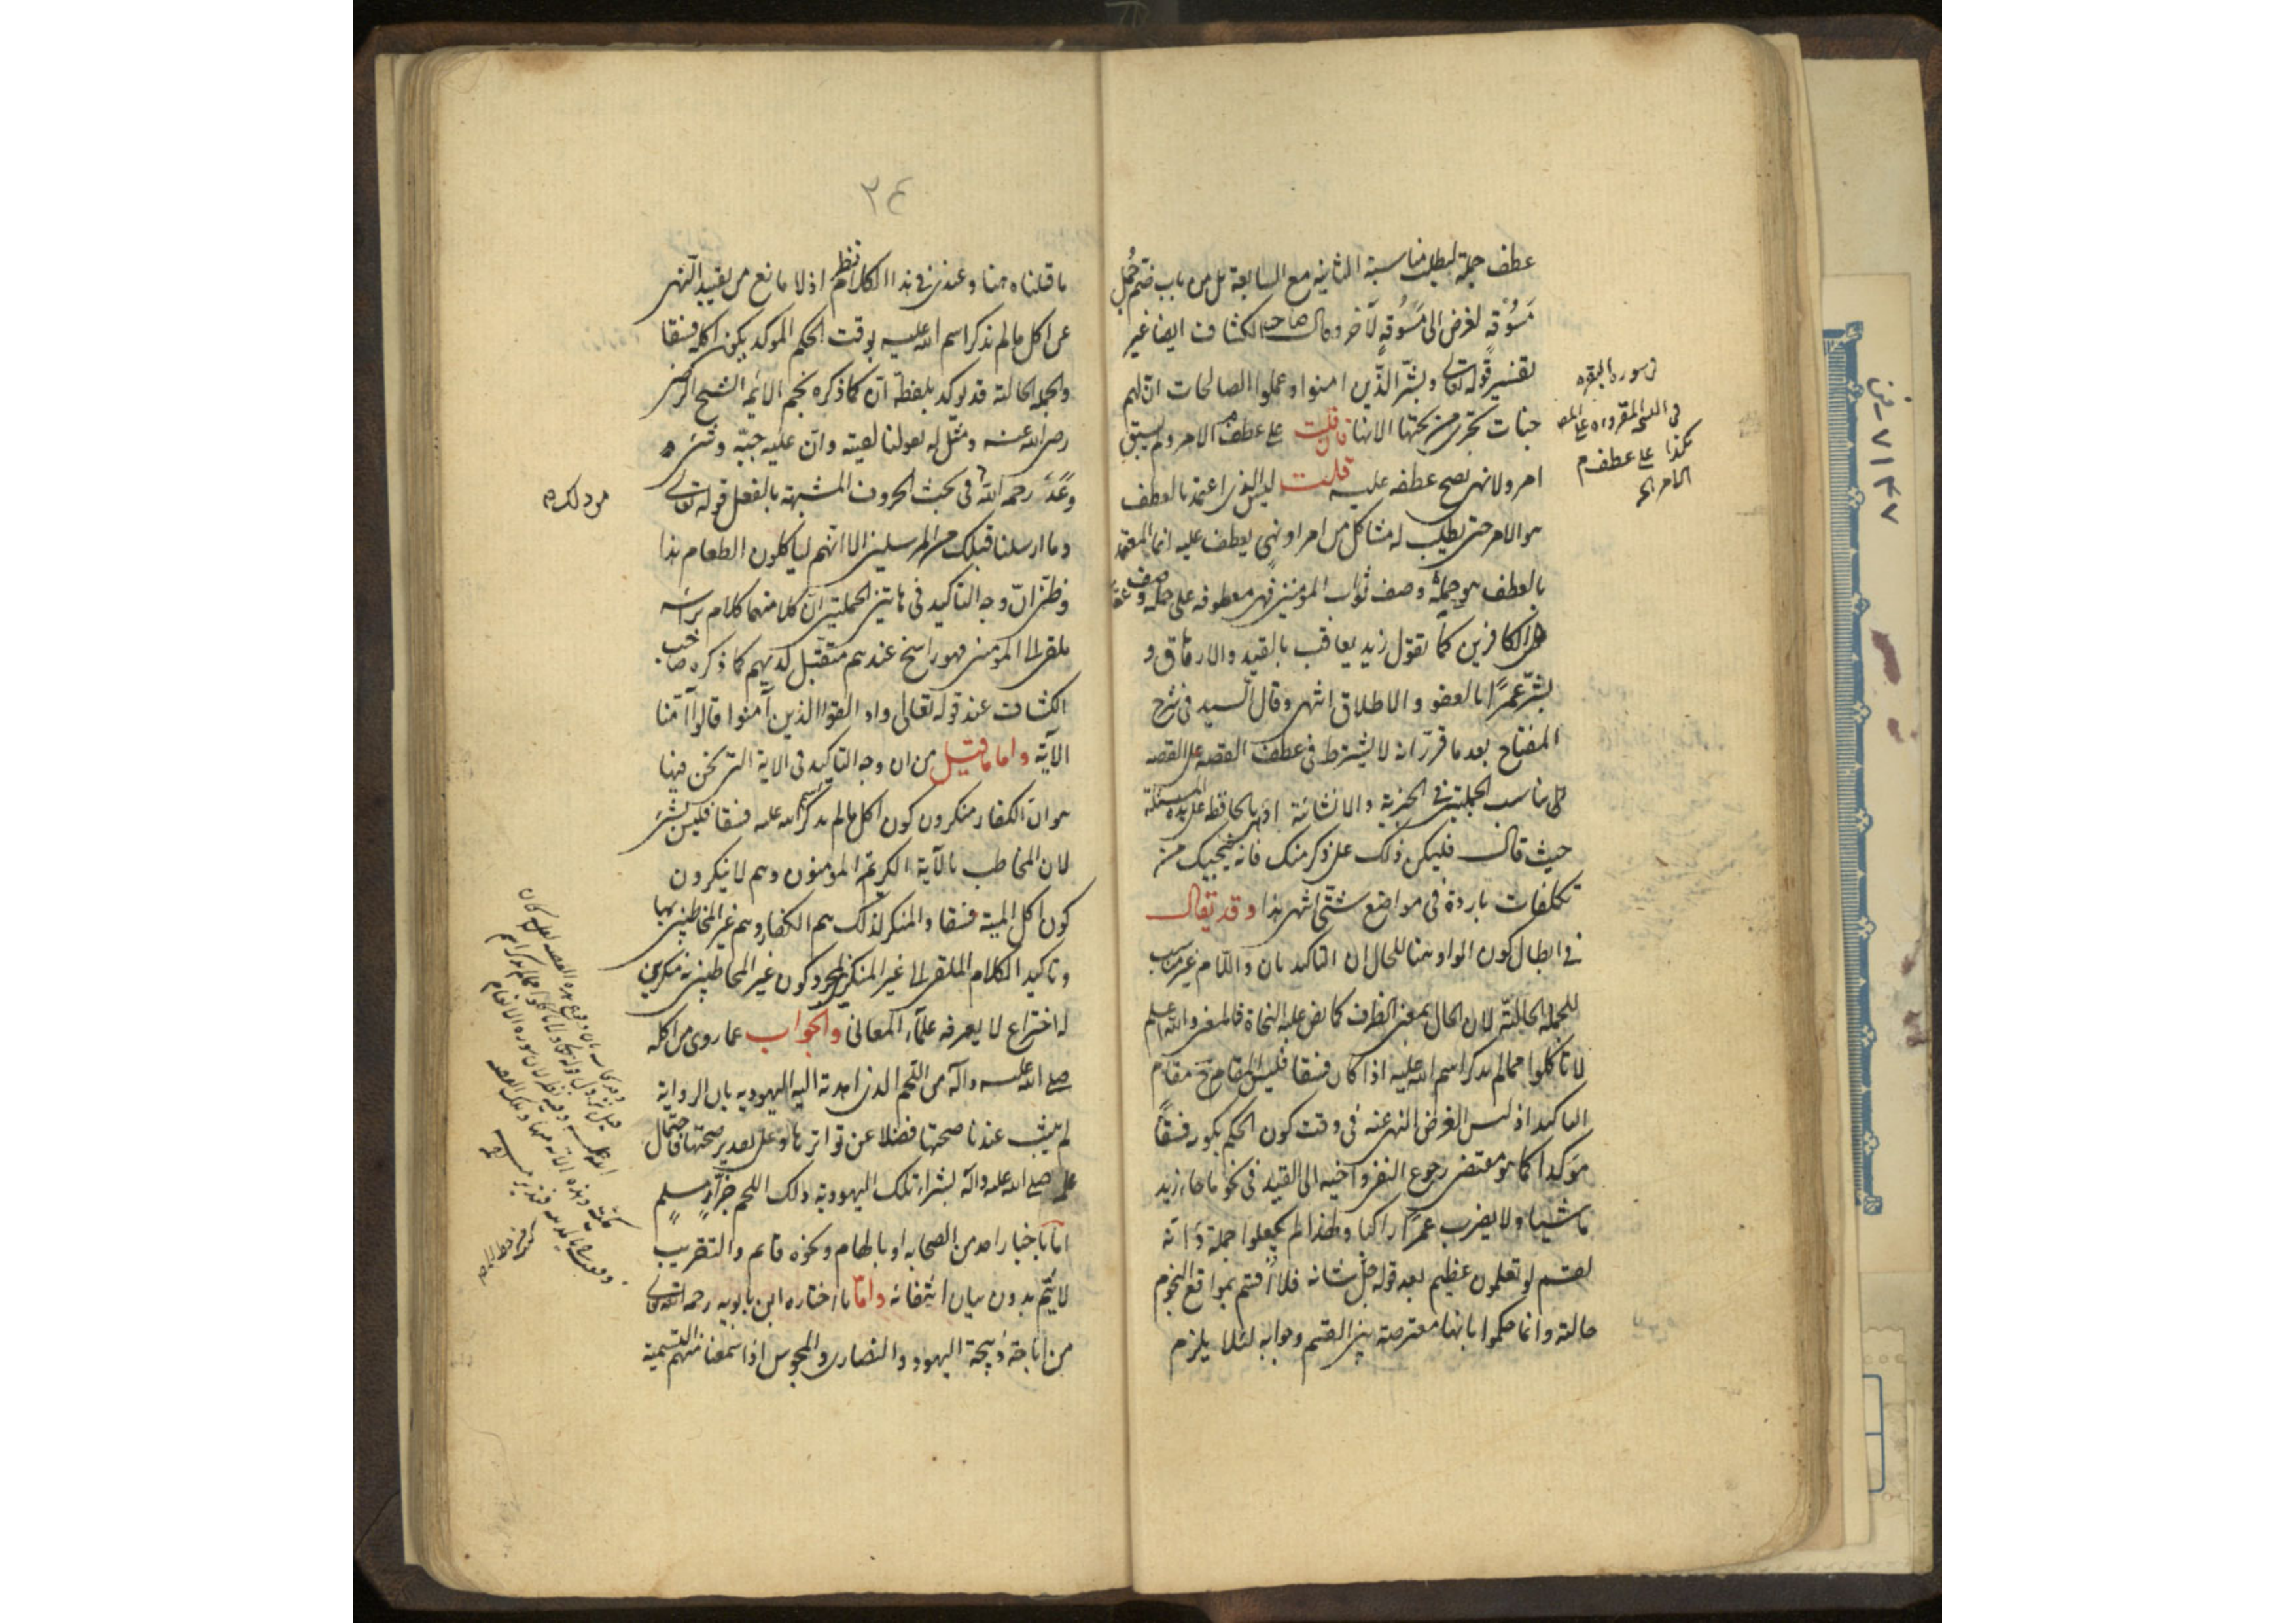 عطف جملة لبطلت مناسبة الثانية مع السابقة بل من باب ضم جُمل
مَسُوقةٍ لغرض الى مَسُوقةٍ لآخر وقال صاحب الكشاف ايضا غير
تفسير قوله تعالى وبشّر الذّين امنوا وعملوا الصالحات انّ لهم
جنات تجرى من تحتها الانهار فان قلت على عطف الامر ولم يسبق
امر ولا نهى يصح عطفه عليه قلت ليس الذى اعتمد بالعطف
هو الامر حتى يطلب له مشاكل من امر او نهى يعطف عليه انما المعتمد
بالعطف هو جملة وصف ثواب المؤمنين فهى معطوفة على جملة وصف عقاب
الكافرين كما تقول زيد يعاقب بالقيد والارهاق و
بشّر عمرًا بالعفو والاطلاق انتهى وقال السيد فى شرح
المفتاح بعد ما قرّر انه لا يشترط فى عطف القصة على القصة
تناسب الجملتين فى الخبرية والانشائية اوصى بالحافظ على هذه المسئلة
حيث قال فليكن ذلك على ذكر منك فانه ينجيك من
تكلفات باردة فى مواضع شتّى انتهى هذا وقد يقال
فى ابطال كون الواو هنا للحال ان التاكيد بان واللّام غير مناسب
للجملة الحاليّة لان الحال بمعنى الظرف كما نص عليه النحاة فالمعنى والله اعلم
لا تاكلوا مما لم يذكر اسم الله عليه اذا كان فسقا فليس المقام ح مقام
التاكيد اذ ليس الغرض النهى عنه فى وقت كون الحكم بكونه فسقًا
مؤكدا كما هو مقتضى رجوع النفى واخيه الى القيد فى نحو ما جاء زيد
ماشيا ولا يضرب عمرًا راكبا ولهذا لم يجعلوا جملة وَانه
لقسم لو تعلمون عظيم بعد قوله جلّ شانه فلا اُقسم بمواقع النجوم
حالية وانما حكموا بانها معترضة بين القسم وجوابه لئلا يلزم
فى سورة البقرة
هكذا على عطف
الامر الخ
٧١٤٧ - ض
٣٤
ما قلناه هنا وعندى فى هذا الكلام نظر اذ لا مانع من تقييد النهى
عن اكل ما لم يذكر اسم الله عليه بوقت الحكم المؤكد بكون اكله فسقا
والجملة الحالية قد توكد بلفظة انّ كما ذكره نجم الائمة الشيخ الرضى
رضى الله عنه ومثّل له بقولنا لقيته وانّ عليه جبّة وشى
وعَدّ رحمه الله فى بحث الحروف المشبهة بالفعل قوله تعالى
وما ارسلنا قبلك من المرسلين الا انهم لياكلون الطعام هذا
وظنّى انّ وجه التاكيد فى هاتين الجملتين انّ كلا منهما كلام براسه
ملقى الى المؤمنين فهو راسخ عندهم متقبّل لديهم كما ذكره صاحب
الكشاف عند قوله تعالى واذا لقوا الذين آمنوا قالوا آمنا
الآية واما ما قيل من ان وجه التاكيد فى الاية التى نحن فيها
هو انّ الكفار منكرون كون اكل ما لم يذكر اسم الله عليه فسقا فليس بشئ
لان المخاطب بالآية الكريمة المؤمنون وهم لا ينكرون
كون اكل الميتة فسقا والمنكر لذلك هم الكفار وهم غير المخاطبين بها
وتاكيد الكلام الملقى الى غير المنكر لمجرد كون غير المخاطبين به منكرين
له اختراع لا يعرفه علماء المعانى والجواب عما روى من اكله
صلى الله عليه وآله من اللحم الذى اهدته اليه اليهودية بان الرواية
لم يثبت عندنا صحتها فضلا عن تواترها وعلى تقدير صحتها فاحتمال
علمه صلى الله عليه وآله بشراء تلك اليهودية ذلك اللحم من جزّارٍ مسلمٍ
امّا باخبار احد من الصحابة او بالهام ونحوه قائم والتقريب
لا يتمّ بدون بيان انتفائه وامّا ما اختاره ابن بابويه رحمه الله تعالى
من اباحة ذبيحة اليهود والنصارى والمجوس اذا سمعنا منهم التسمية